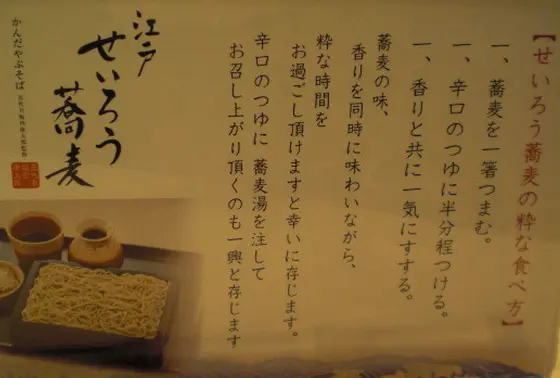 【せいろう蕎麦の粋な食べ方】
一、蕎麦を一箸つまむ。
一、辛口のつゆに半分程つける。
一、香りと共に一気にすする。
蕎麦の味、
香りを同時に味わいながら、
粋な時間を
お過ごし頂けますと幸いに存じます。
辛口のつゆに 蕎麦湯を注して
お召し上がり頂くのも一興と存じます
江戸
せいろう
蕎麦
かんだやぶそば